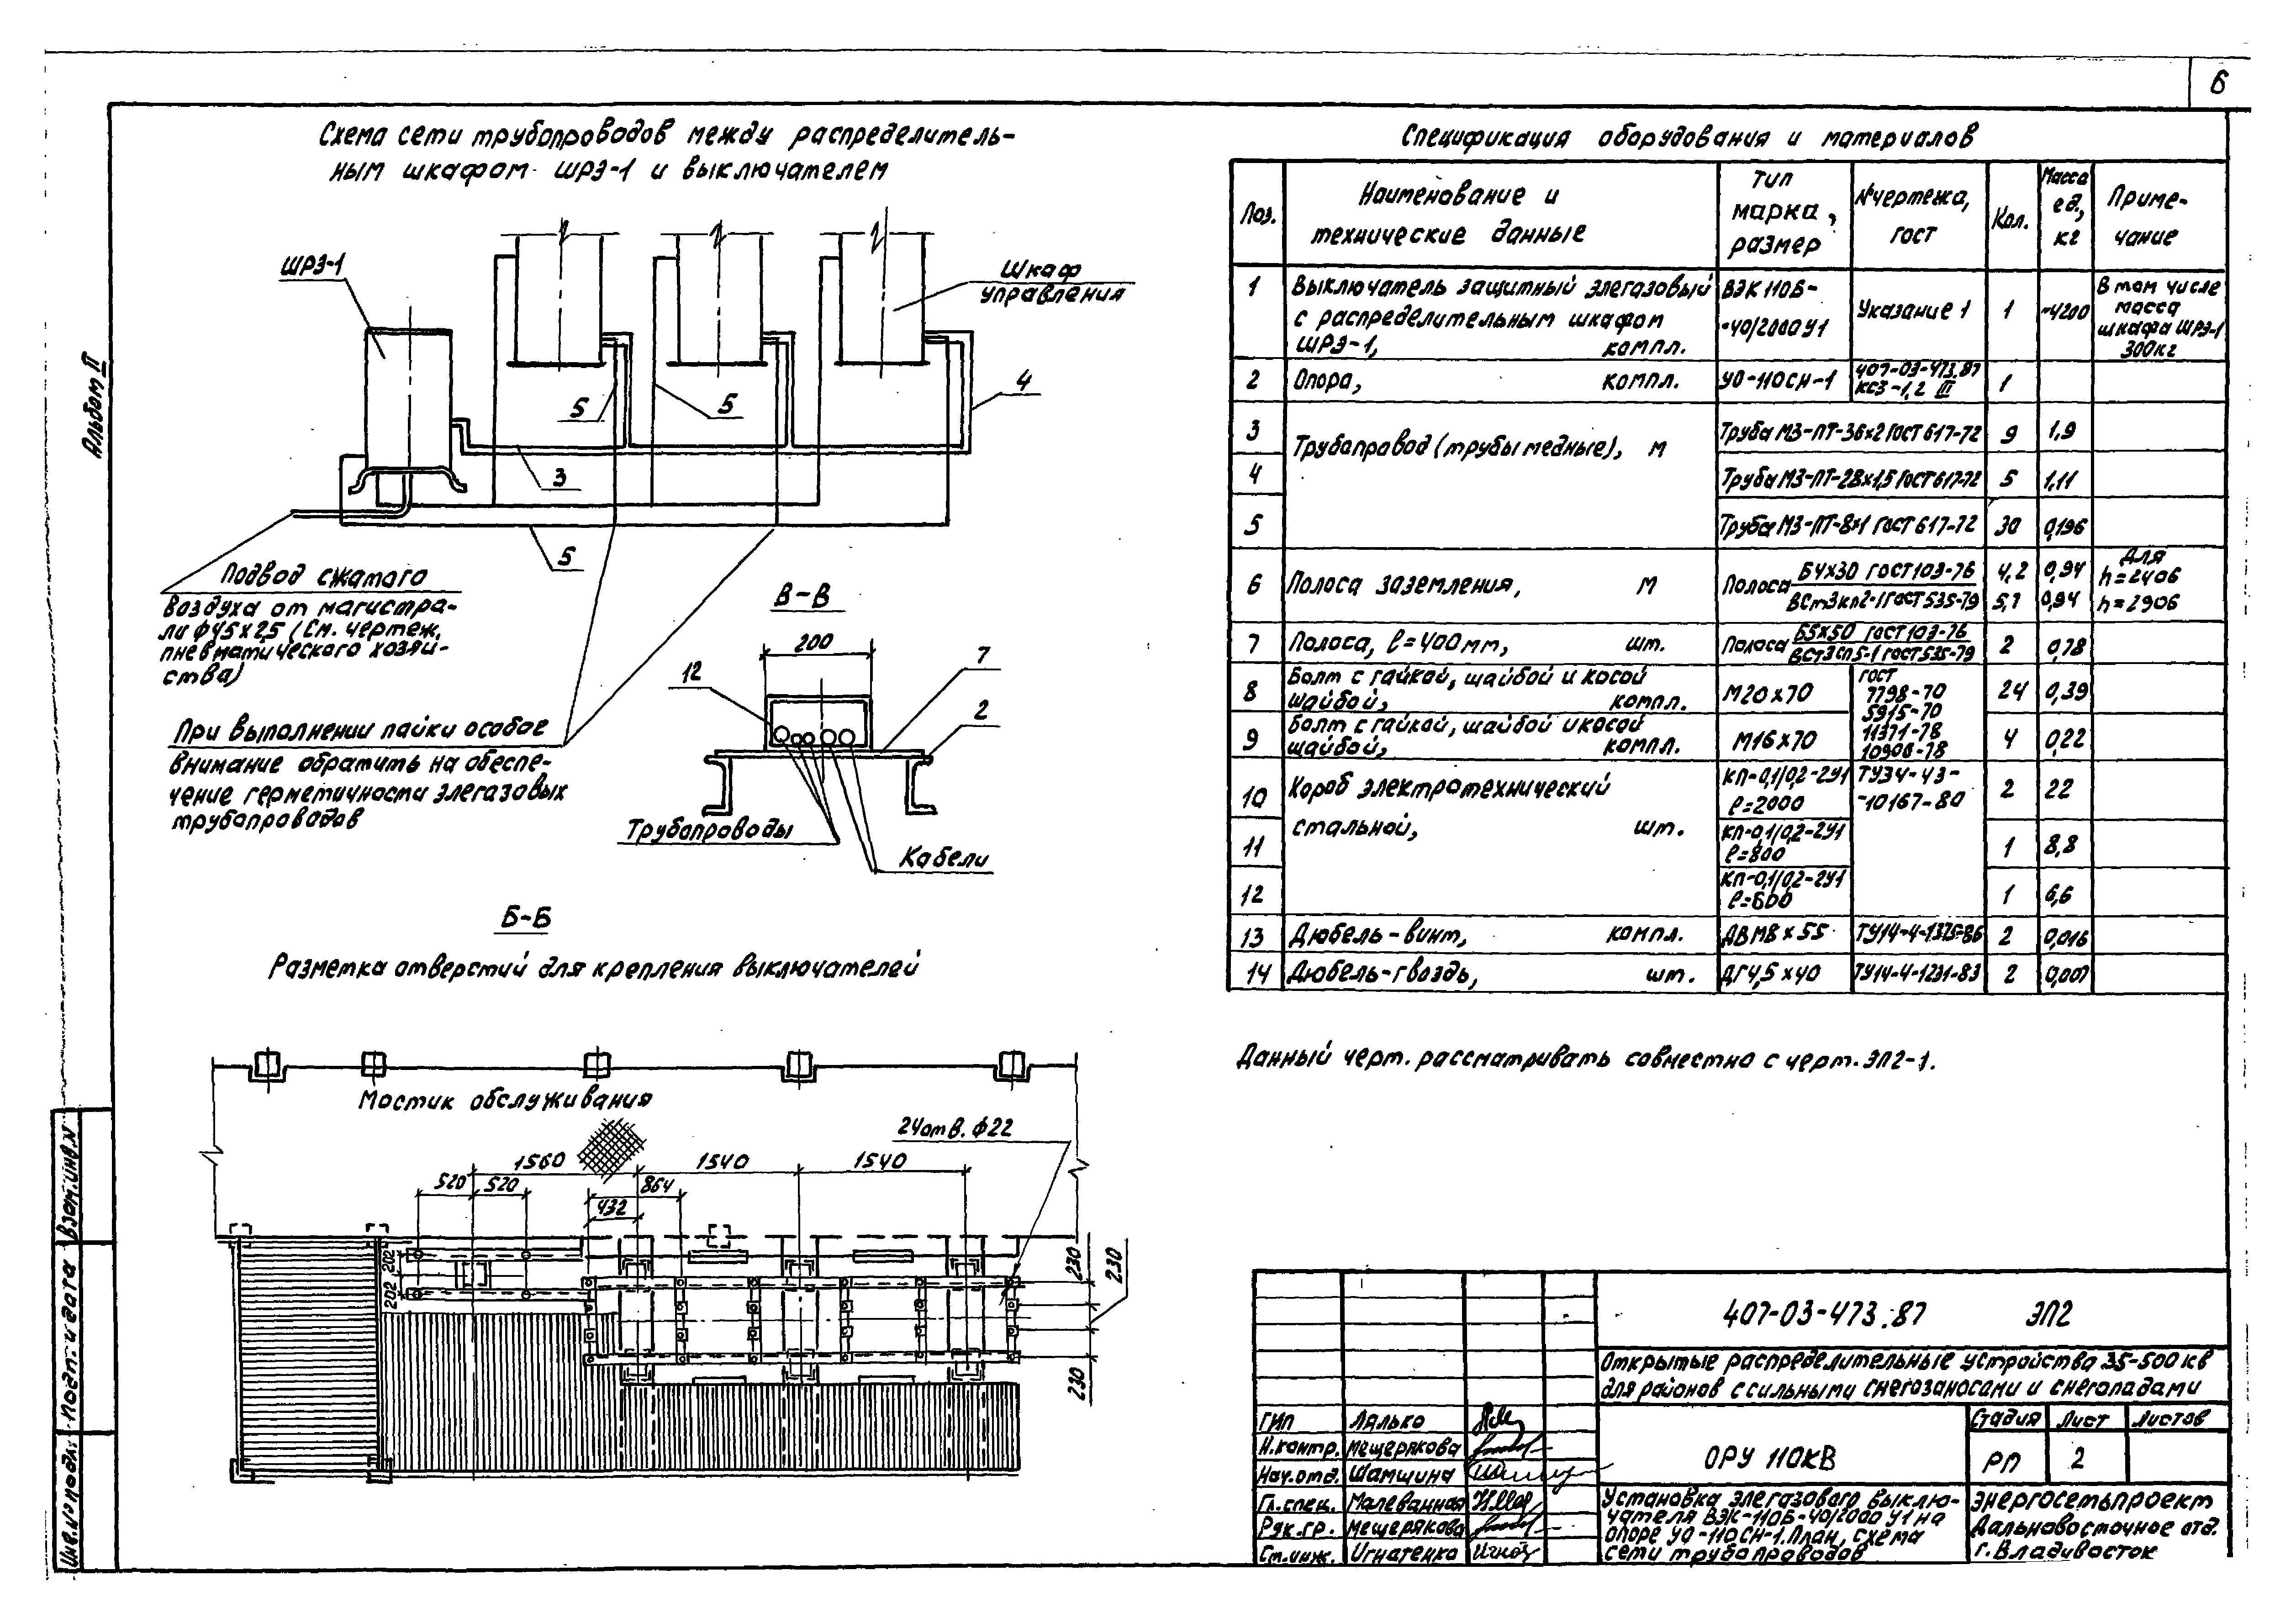 6
Альбом II
Схема сети трубопроводов между распределитель-
ным шкафом ШРЭ-1 и выключателем
ШРЭ-1
Шкаф
управления
5
5
4
3
5
Подвод сжатого
воздуха от магистра-
ли ф45х2,5 (См. чертеж.
пневматического хозяй-
ства)
При выполнении пайки особое
внимание обратить на обеспе-
чение герметичности элегазовых
трубопроводов
В-В
200
12
7
2
Трубопроводы
Кабели
Б-Б
Разметка отверстий для крепления выключателей
Мостик обслуживания
24отв. ф22
1560 1540 1540
520 520 864
432
202
202
230
230
230
Спецификация оборудования и материалов
Поз. Наименование и технические данные Тип марка, размер №чертежа, гост Кол. Масса ед., кг Приме-чание
1 Выключатель защитный элегазовый ВЭК110Б- Указание 1 1 ~4200 В том числе
с распределительным шкафом -40/2000У1 масса
ШРЭ-1, компл. шкафа ШРЭ-1
300кг
2 Опора, компл. УО-110СН-1 407-03-473.87 КСЗ-1,2 III 1
3 Трубопровод (трубы медные), м Труба МЗ-ПТ-36х2 ГОСТ 617-72 9 1,9
4 Труба МЗ-ПТ-28х1,5 ГОСТ 617-72 5 1,11
5 Труба МЗ-ПТ-8х1 ГОСТ 617-72 30 0,196
6 Полоса заземления, м Полоса Б4х30 ГОСТ103-76 4,2 0,94 Для h=2406
ВСт3кп2-1ГОСТ535-79 5,7 0,94 h=2906
7 Полоса, ℓ=400мм, шт. Полоса Б5х50 ГОСТ103-76 2 0,78
ВСт3сп5-1 ГОСТ535-79
8 Болт с гайкой, шайбой и косой шайбой, компл. М20х70 ГОСТ 7798-70 24 0,39
5915-70
9 Болт с гайкой, шайбой и косой шайбой, компл. М16х70 11371-78 4 0,22
10906-78
10 Короб электротехнический КП-0,1/0,2-2У1 ℓ=2000 ТУ34-43- -10167-80 2 22
11 стальной, шт. КП-0,1/0,2-2У1 ℓ=800 1 8,8
12 КП-0,1/0,2-2У1 ℓ=600 1 6,6
13 Дюбель-винт, компл. ДВМ8х55 ТУ14-4-1375-86 2 0,016
14 Дюбель-гвоздь, шт. ДГ4,5х40 ТУ14-4-1231-83 2 0,007
Данный черт. рассматривать совместно с черт. ЭП2-1.
407-03-473.87 ЭП2
Открытые распределительные устройства 35-500 кв
для районов с сильными снегозаносами и снегопадами
ГИП Лялько
Н.контр. Мещерякова
Нач.отд. Шамшина
Гл.спец. Малеванная
Рук.гр. Мещерякова
Ст.инж. Игнатенко
ОРУ 110кВ
Стадия Лист Листов
РП 2
Установка элегазового выклю-
чателя ВЭК-110Б-40/2000 У1 на
опоре УО-110СН-1. План, схема
сети трубопроводов
Энергосетьпроект
Дальневосточное отд.
г. Владивосток
Инв.№ подл. Подп. и дата Взам.инв.№